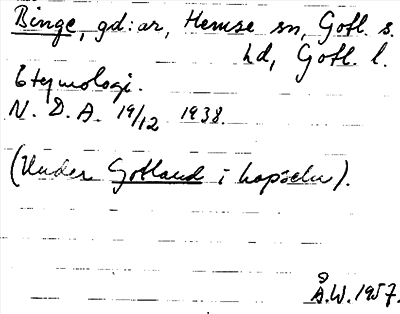 Binge, gd:ar, Hemse sn, Gotl. s.
hd, Gotl. l.
Etymologi.
N. D. A. 19/12 1938.
(Under Gotland i kapseln).
Å.W. 1957.